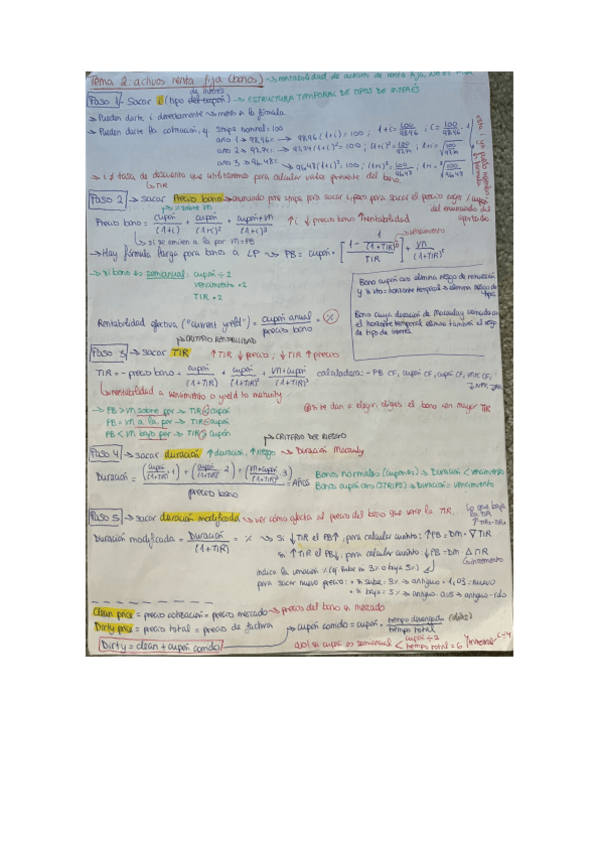 Tema 2: activos renta fija (bonos) → rentabilidad de activos de renta fija,
de interés
Paso 1 - Sacar i (tipo del cupón) → ESTRUCTURA TEMPORAL DE TIPOS DE INTERÉS
→ Pueden darte i directamente → meto en la fórmula
→ Pueden darte la cotización, y strips nominal = 100
año 1 → 98.96% → 98.96 (1+i) = 100 ; 1+i = 100/98.96 ; i = 100/98.96 - 1
año 2 →
año 3 → 96.48% → 96.48 (1+i)³ = 100 ;
→ i = tasa de descuento que utilizaremos para calcular valor presente del bono.
↳ TIR
Paso 2 → sacar Precio bono → enunciado pone strips para sacar i, pero para sacar el precio cojer i/cupón del enunciado del apartado
Precio bono = cupón/(1+i) + cupón/(1+i)² + cupón+vn/(1+i)³ ↑i ↓precio bono ↑rentabilidad
↳ si se emiten a la par vn = PB
→ Hay fórmula larga para bonos a LP → PB = cupón · [1 - 1/(1+TIR)ⁿ / TIR] + vn/(1+TIR)ⁿ
→ vencimiento
→ si bono es semianual: cupón ÷ 2
vencimiento · 2
TIR ÷ 2
Bono cupón cero elimina riesgo de reinversión
y si vto = horizonte temporal → elimina riesgo de tipos
Bono cuya duración de Macaulay coincida con
el horizonte temporal elimina también el riesgo
de tipo de interés.
Rentabilidad efectiva ("current yield") = cupón anual / precio bono = %
↳ CRITERIO RENTABILIDAD
Paso 3 → sacar TIR ↑TIR ↓precio ; ↓TIR ↑precio
TIR = - precio bono + cupón/(1+TIR) + cupón/(1+TIR)² + vn+cupón/(1+TIR)³ calculadora: -PB CF, cupón CF, cupón CF, vn+c CF,
↳ rentabilidad a vencimiento o yield to maturity
→ PB > vn sobre par → TIR < cupón
PB = vn a la par → TIR = cupón
PB < vn bajo par → TIR > cupón
si te dan a elegir, eliges el bono con mayor TIR
↳ CRITERIO DEL RIESGO
Paso 4 → sacar duración ↑duración, ↑riesgo → Duración Macaulay
Duración = (cupón/(1+TIR) · 1) + (cupón/(1+TIR)² · 2) + (vn+cupón/(1+TIR)³ · 3) / precio bono = AÑOS
Bonos normales (cupones) → Duración < vencimiento
Bonos cupón cero (STRIPS) → Duración = vencimiento
Paso 5 → sacar duración modificada → ver cómo afecta al precio del bono que varíe la TIR,
Duración modificada = Duración / (1+TIR) = % → Si ↓TIR el PB↑, para calcular cuánto: ↑PB = DM · ∇TIR
Lo que baja la TIR
si ↑TIR el PB↓, para calcular cuánto: ↓PB = DM · ΔTIR
↳ incremento
indica la variación % (si sube un 3% o baja 3%)
para sacar nuevo precio: • si sube: 3% → antiguo · 1,03 = nuevo
• si baja: 3% →
Clean price = precio cotización = precio mercado → precio del bono en mercado
Dirty price = precio total = precio de factura
→ cupón corrido = cupón · tiempo devengado (días) / tiempo total
Dirty = clean + cupón corrido
ojo! si cupón es semianual < cupón ÷ 2
tiempo total = 6